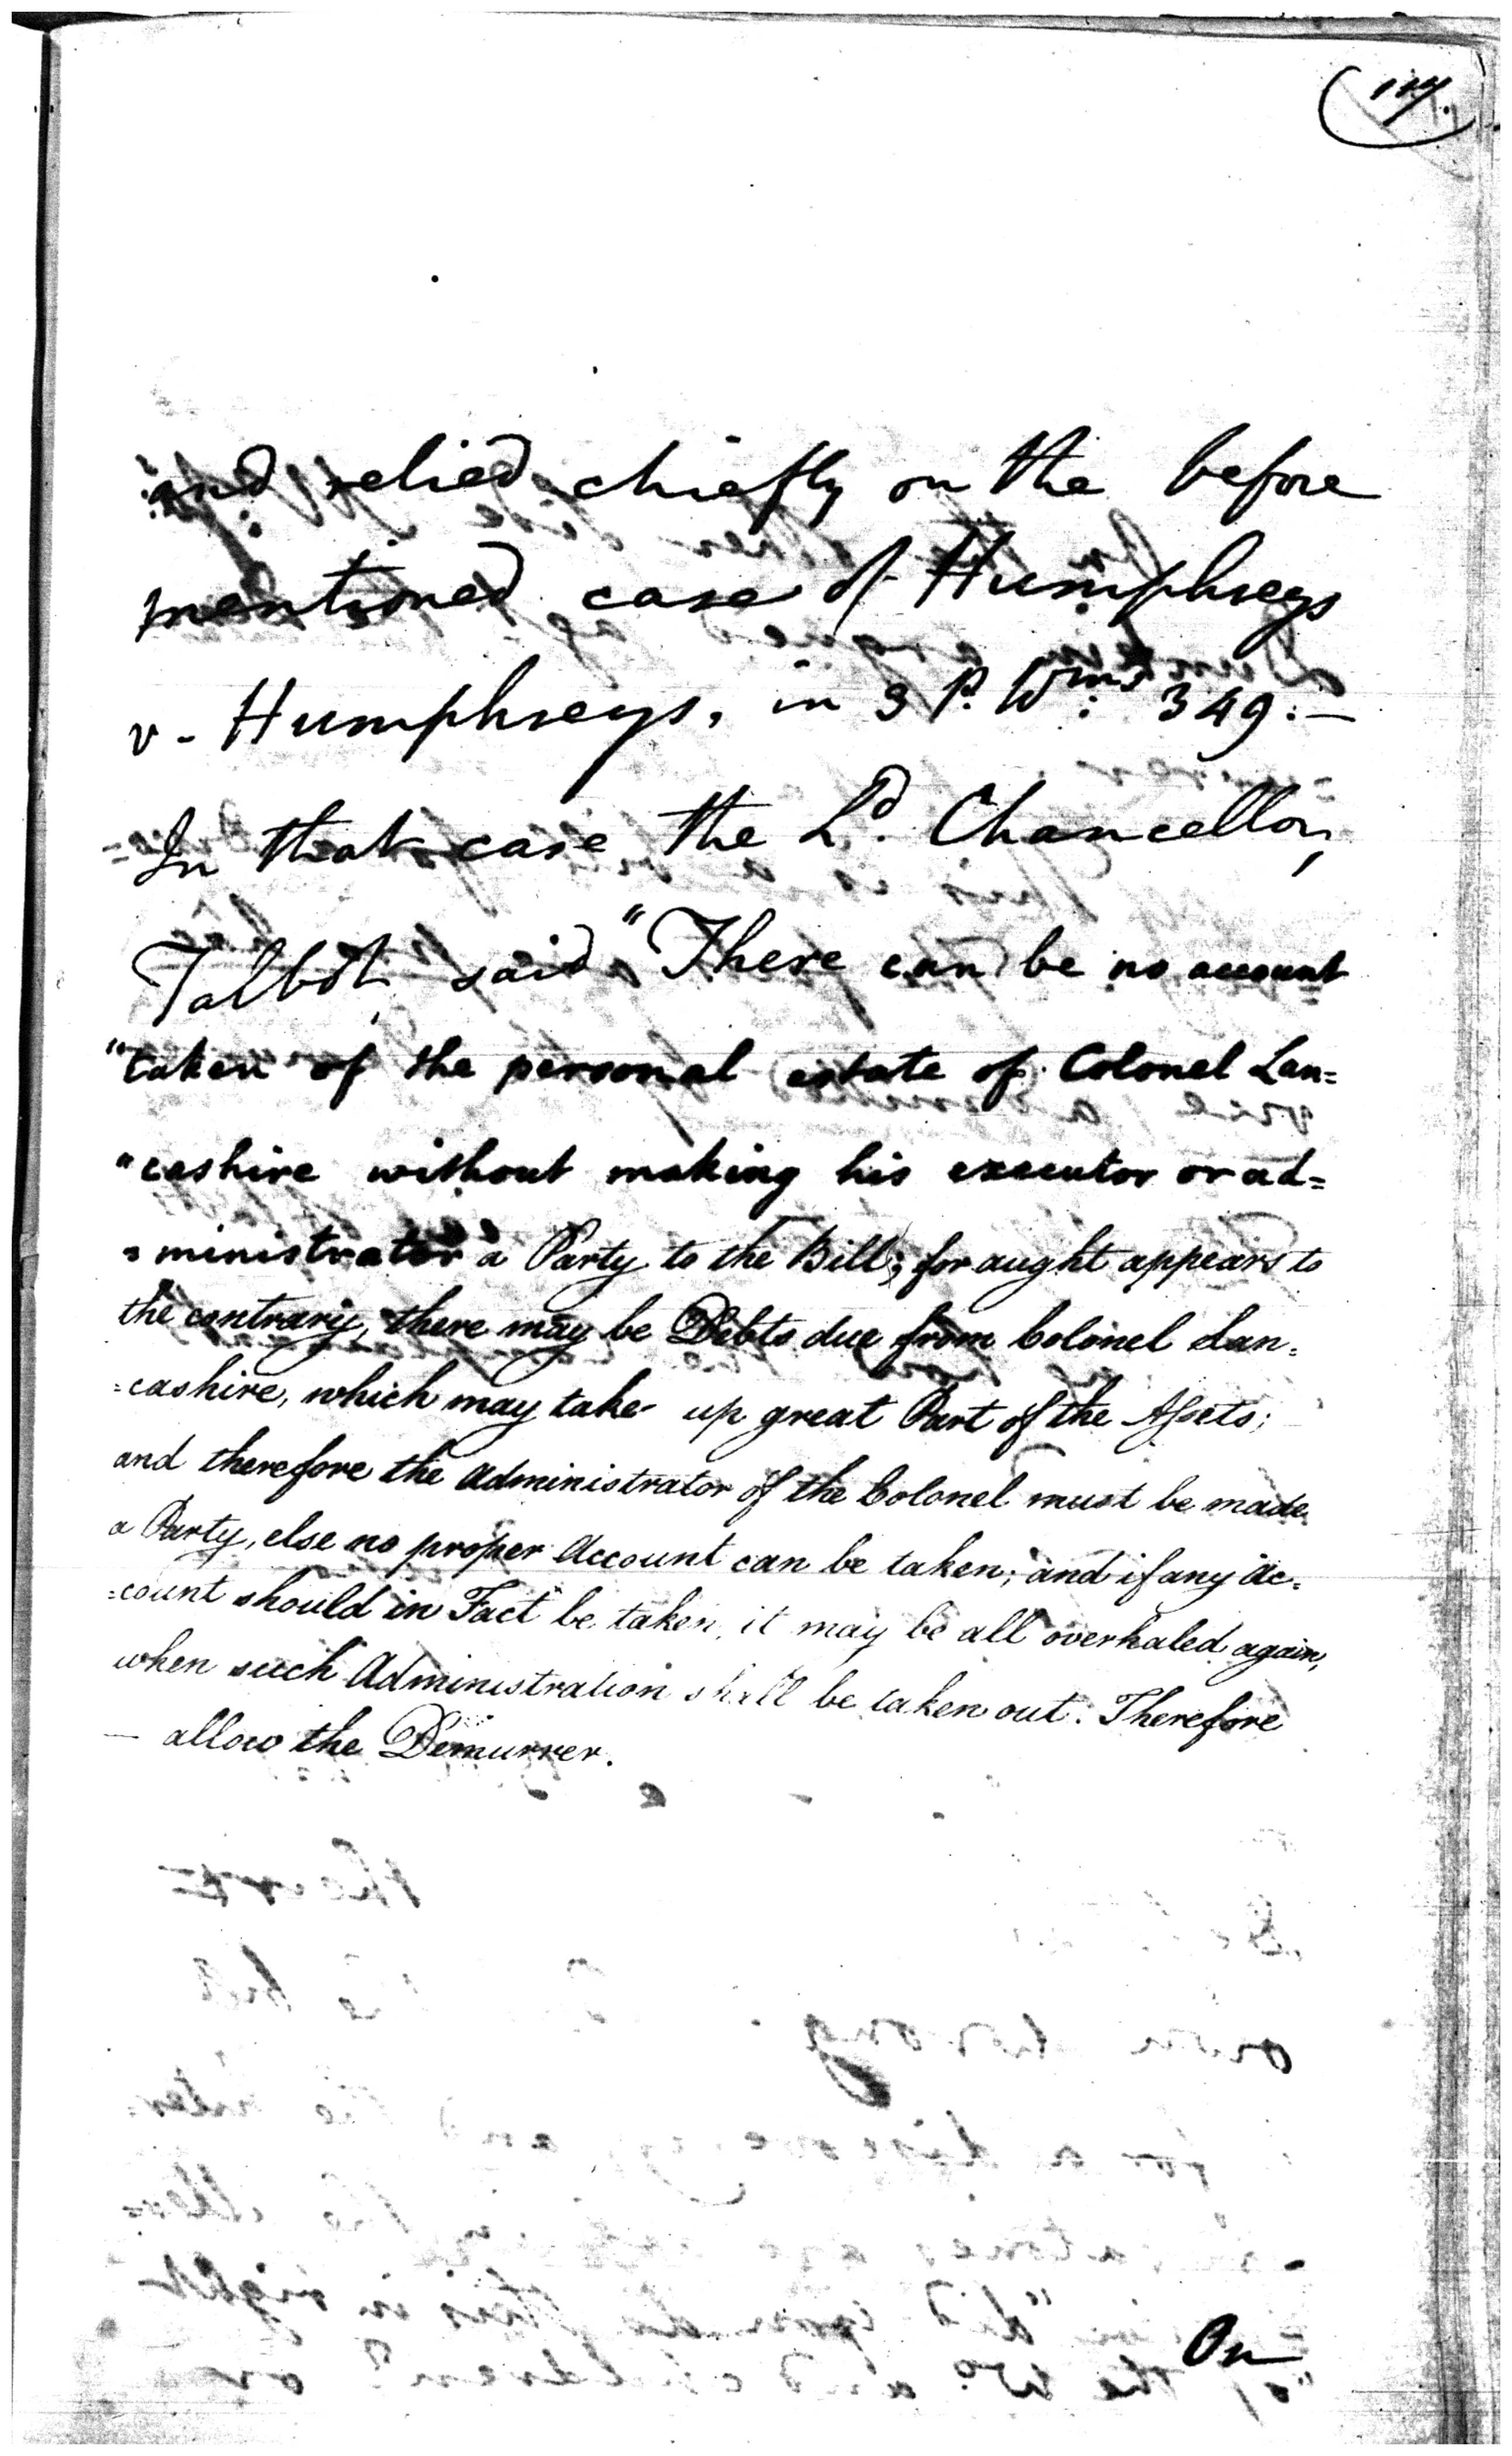 and relied chiefly on the before
mentioned case of Humphreys
v. Humphreys, in 3 P. Wms: 349:—
In that case the Ld. Chancellor,
Talbot, said "There can be no account
"taken of the personal estate of Colonel Lan=
"cashire without making his executor or ad=
"ministrator a Party to the Bill; for aught appears to
the contrary, there may be Debts due from Colonel Lan=
=cashire, which may take up great Part of the Assets;
and therefore the Administrator of the Colonel must be made
a Party, else no proper Account can be taken; and if any Ac=
=count should in Fact be taken, it may be all overhaled again,
when such Administration shall be taken out: Therefore
— allow the Demurrer.
On